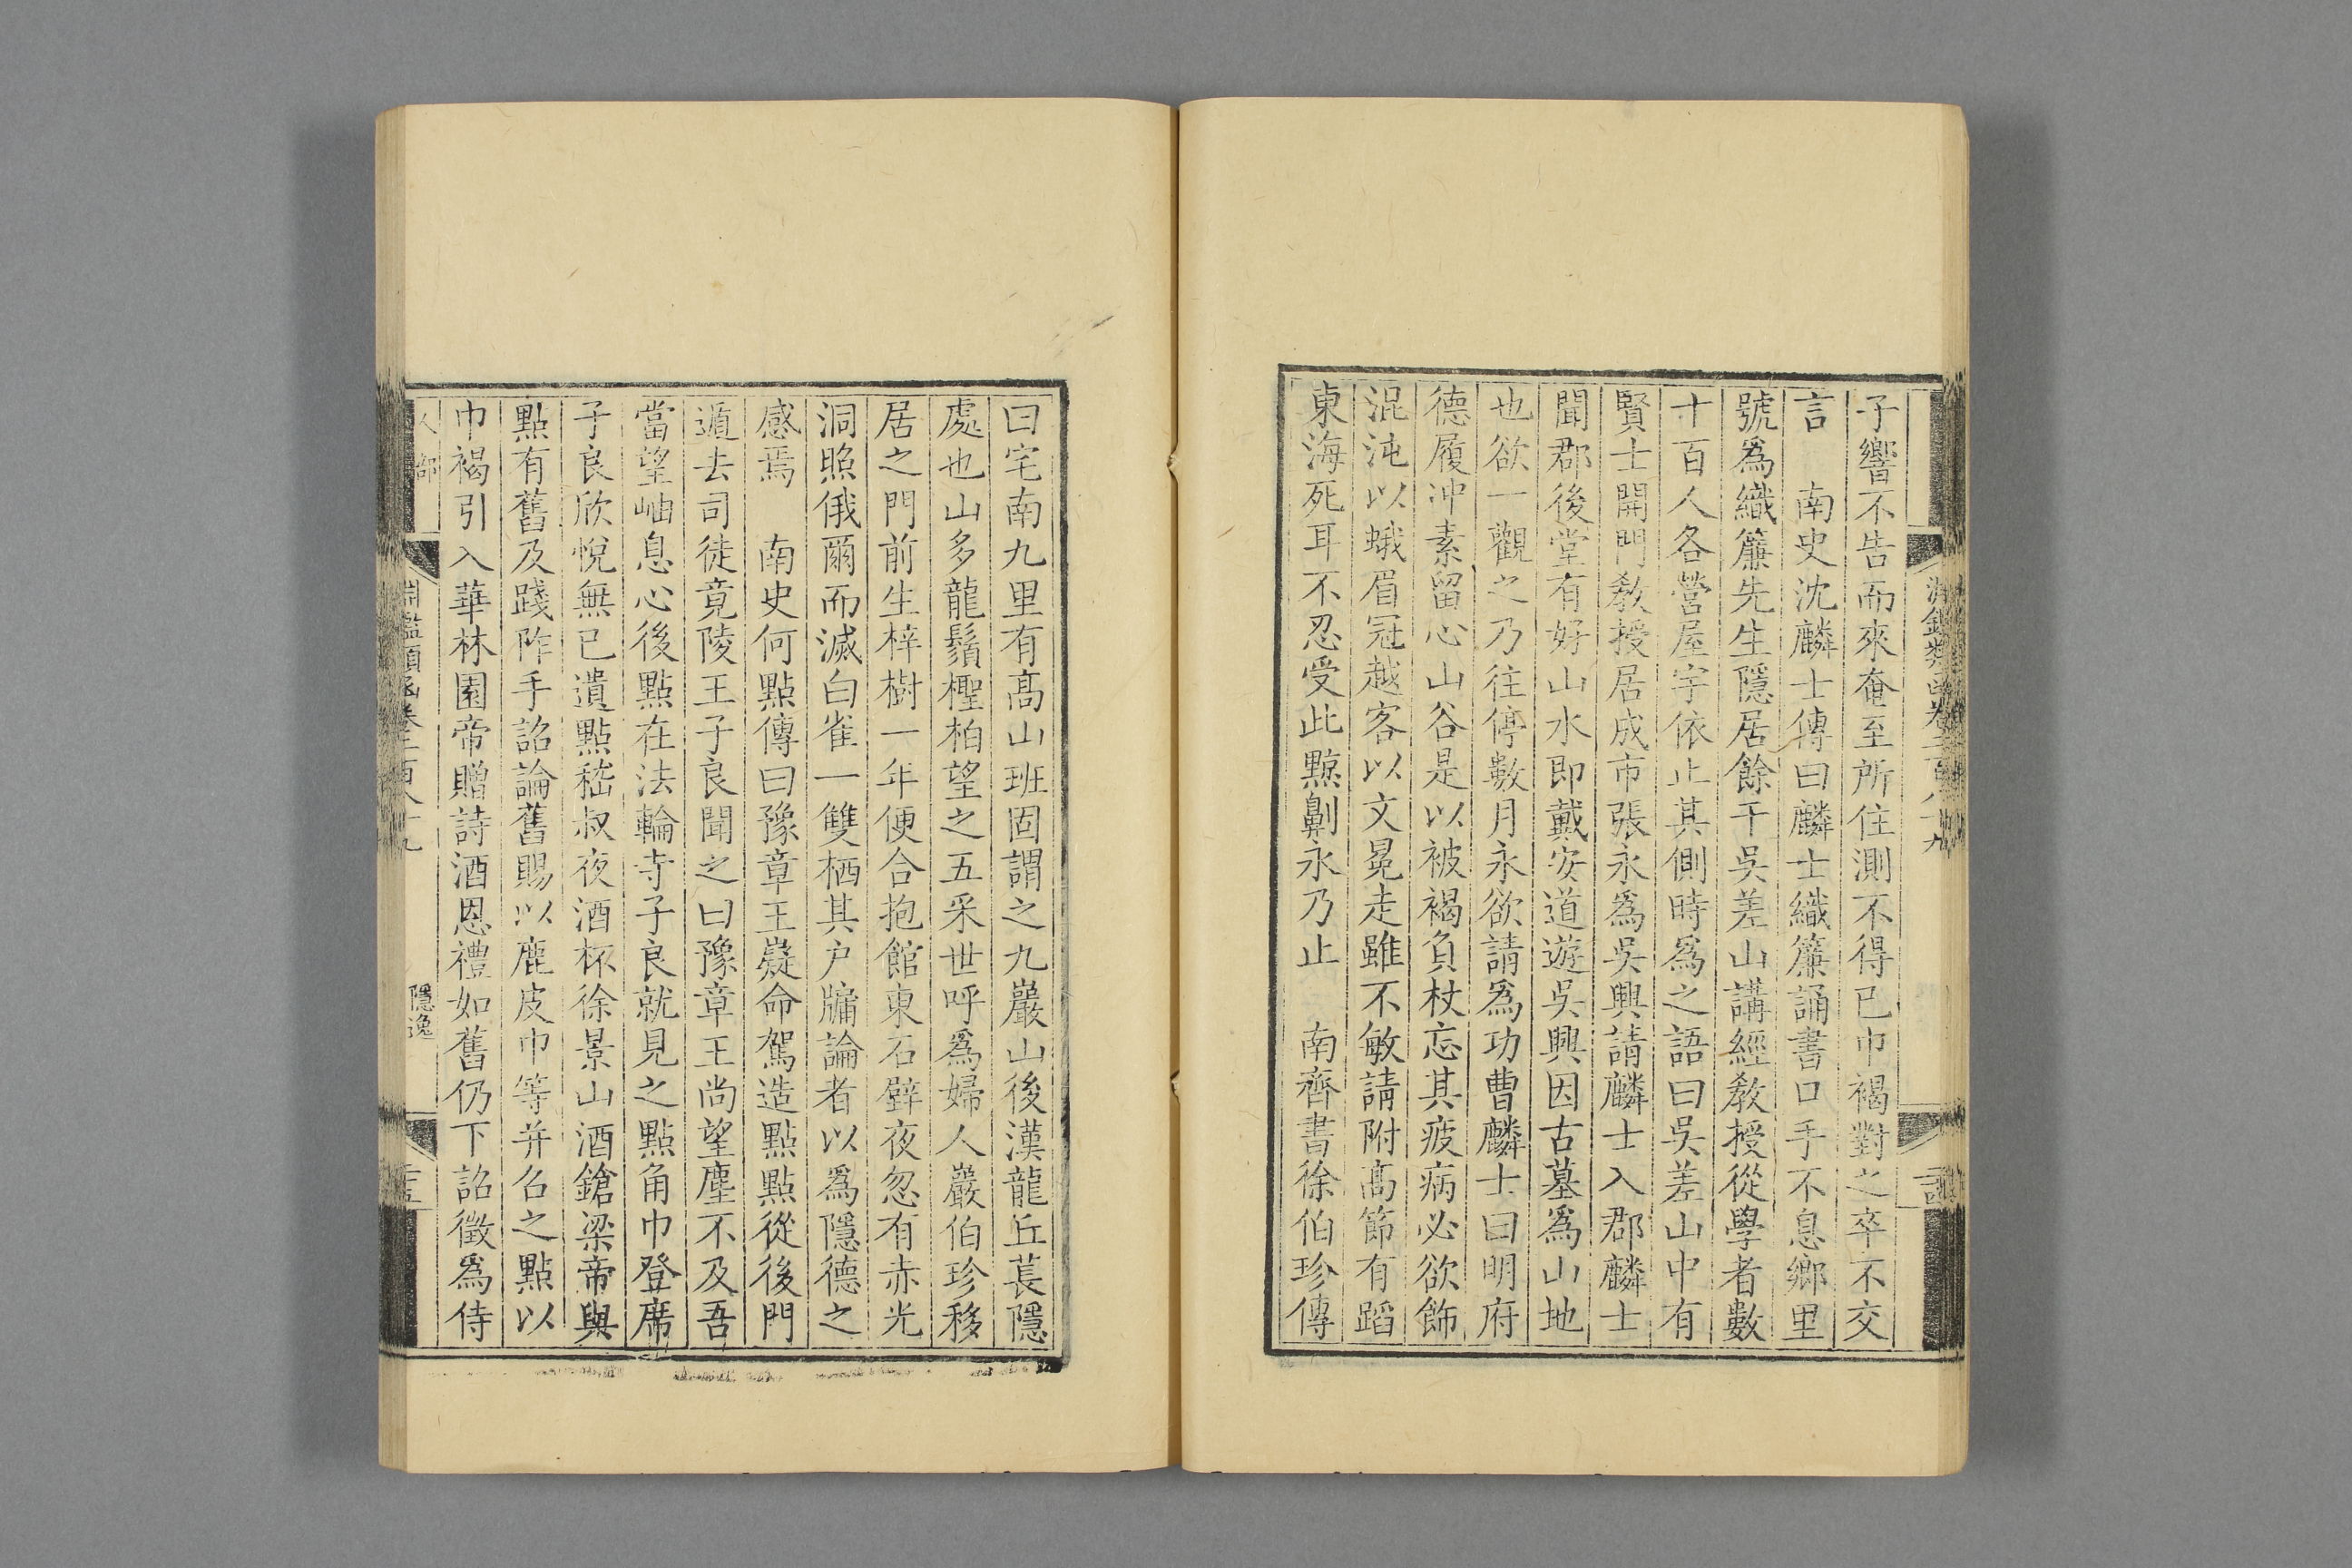 子響不告而來奄至所住測不得已巾褐對之卒不交
言　南史沈麟士傳曰麟士織簾誦書口手不息鄉里
號爲織簾先生隱居餘干吳差山講經敎授從學者數
十百人各營屋宇依止其側時爲之語曰吳差山中有
賢士開門敎授居成市張永爲吳興請麟士入郡麟士
聞郡後堂有好山水即戴安道遊吳興因古墓爲山地
也欲一觀之乃往停數月永欲請爲功曹麟士曰明府
德履冲素留心山谷是以被褐負杖忘其疲病必欲飾
混沌以蛾眉冠越客以文冕走雖不敏請附高節有蹈
東海死耳不忍受此黥劓永乃止　南齊書徐伯珍傳
曰宅南九里有髙山班固謂之九巖山後漢龍丘萇隱
處也山多龍鬚檉柏望之五采世呼爲婦人巖伯珍移
居之門前生梓樹一年便合抱館東石壁夜忽有赤光
洞照俄爾而滅白雀一雙栖其户牖論者以爲隱德之
感焉　南史何點傳曰豫章王嶷命駕造點點從後門
遁去司徒竟陵王子良聞之曰豫章王尚望塵不及吾
當望岫息心後點在法輪寺子良就見之點角巾登席
子良欣悅無已遺點嵇叔夜酒杯徐景山酒鎗梁帝與
點有舊及踐阼手詔論舊賜以鹿皮巾等并召之點以
巾褐引入華林園帝贈詩酒恩禮如舊仍下詔徵爲侍
人部
淵鑑類函卷二百八十九
隱逸